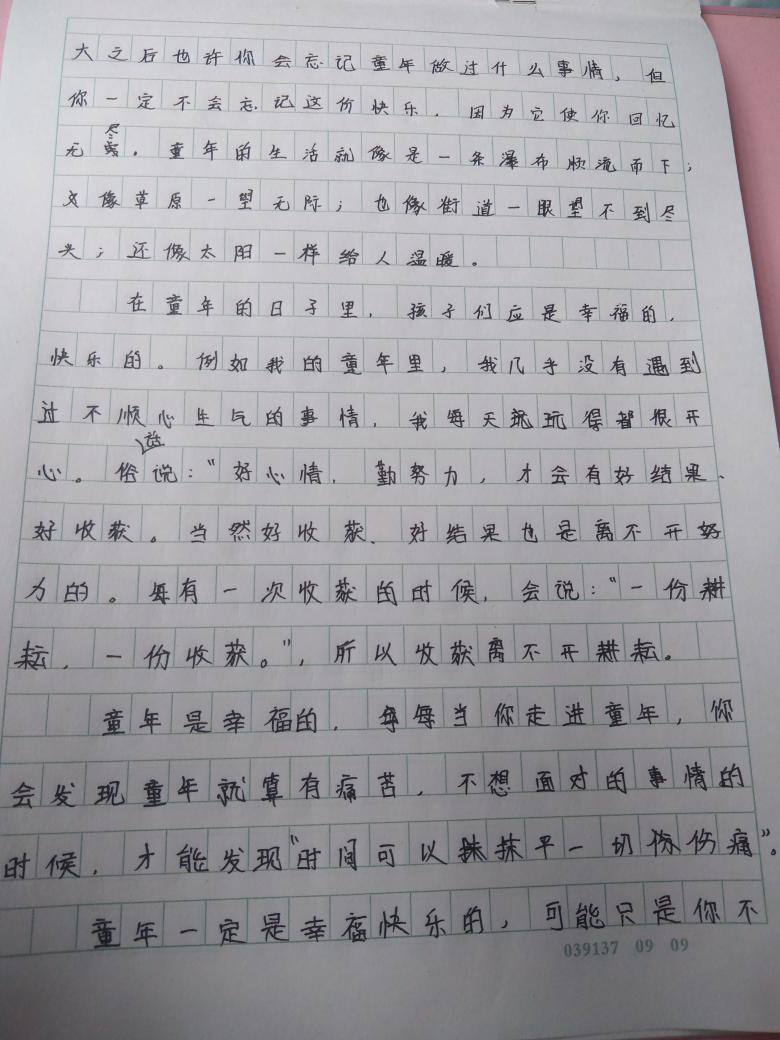 大之后也许你会忘记童年做过什么事情，但
你一定不会忘记这份快乐．因为它使你回忆
无尽．童年的生活就像是一条瀑布顺流而下；
又像草原一望无际；也像街道一眼望不到尽
头；还像太阳一样给人温暖。
在童年的日子里．孩子们应是幸福的．
快乐的。例如我的童年里，我几乎没有遇到
过不顺心生气的事情．我每天玩玩得都很开
心。俗话说：“好心情．勤努力，才会有好结果、
好收获。当然好收获、好结果也是离不开努
力的。每有一次收获的时候，会说：“一份耕
耘．一份收获。”，所以收获离不开耕耘。
童年是幸福的．每每当你走进童年，你
会发现童年就算有痛苦，不想面对的事情的
时候．才能发现“时间可以抹平一切伤痛”。
童年一定是幸福快乐的，可能只是你不
039137 09 09